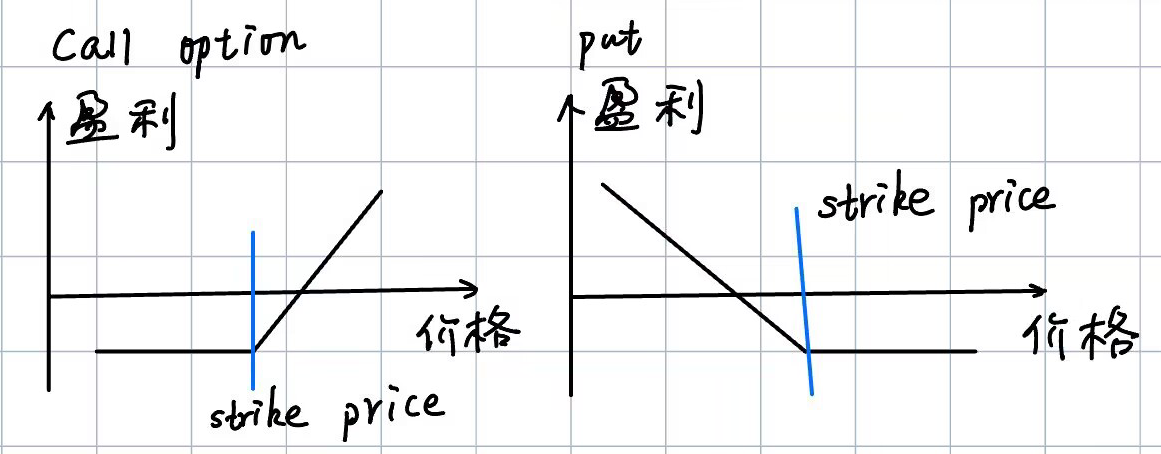 Call option
盈利
价格
strike price
put
盈利
strike price
价格